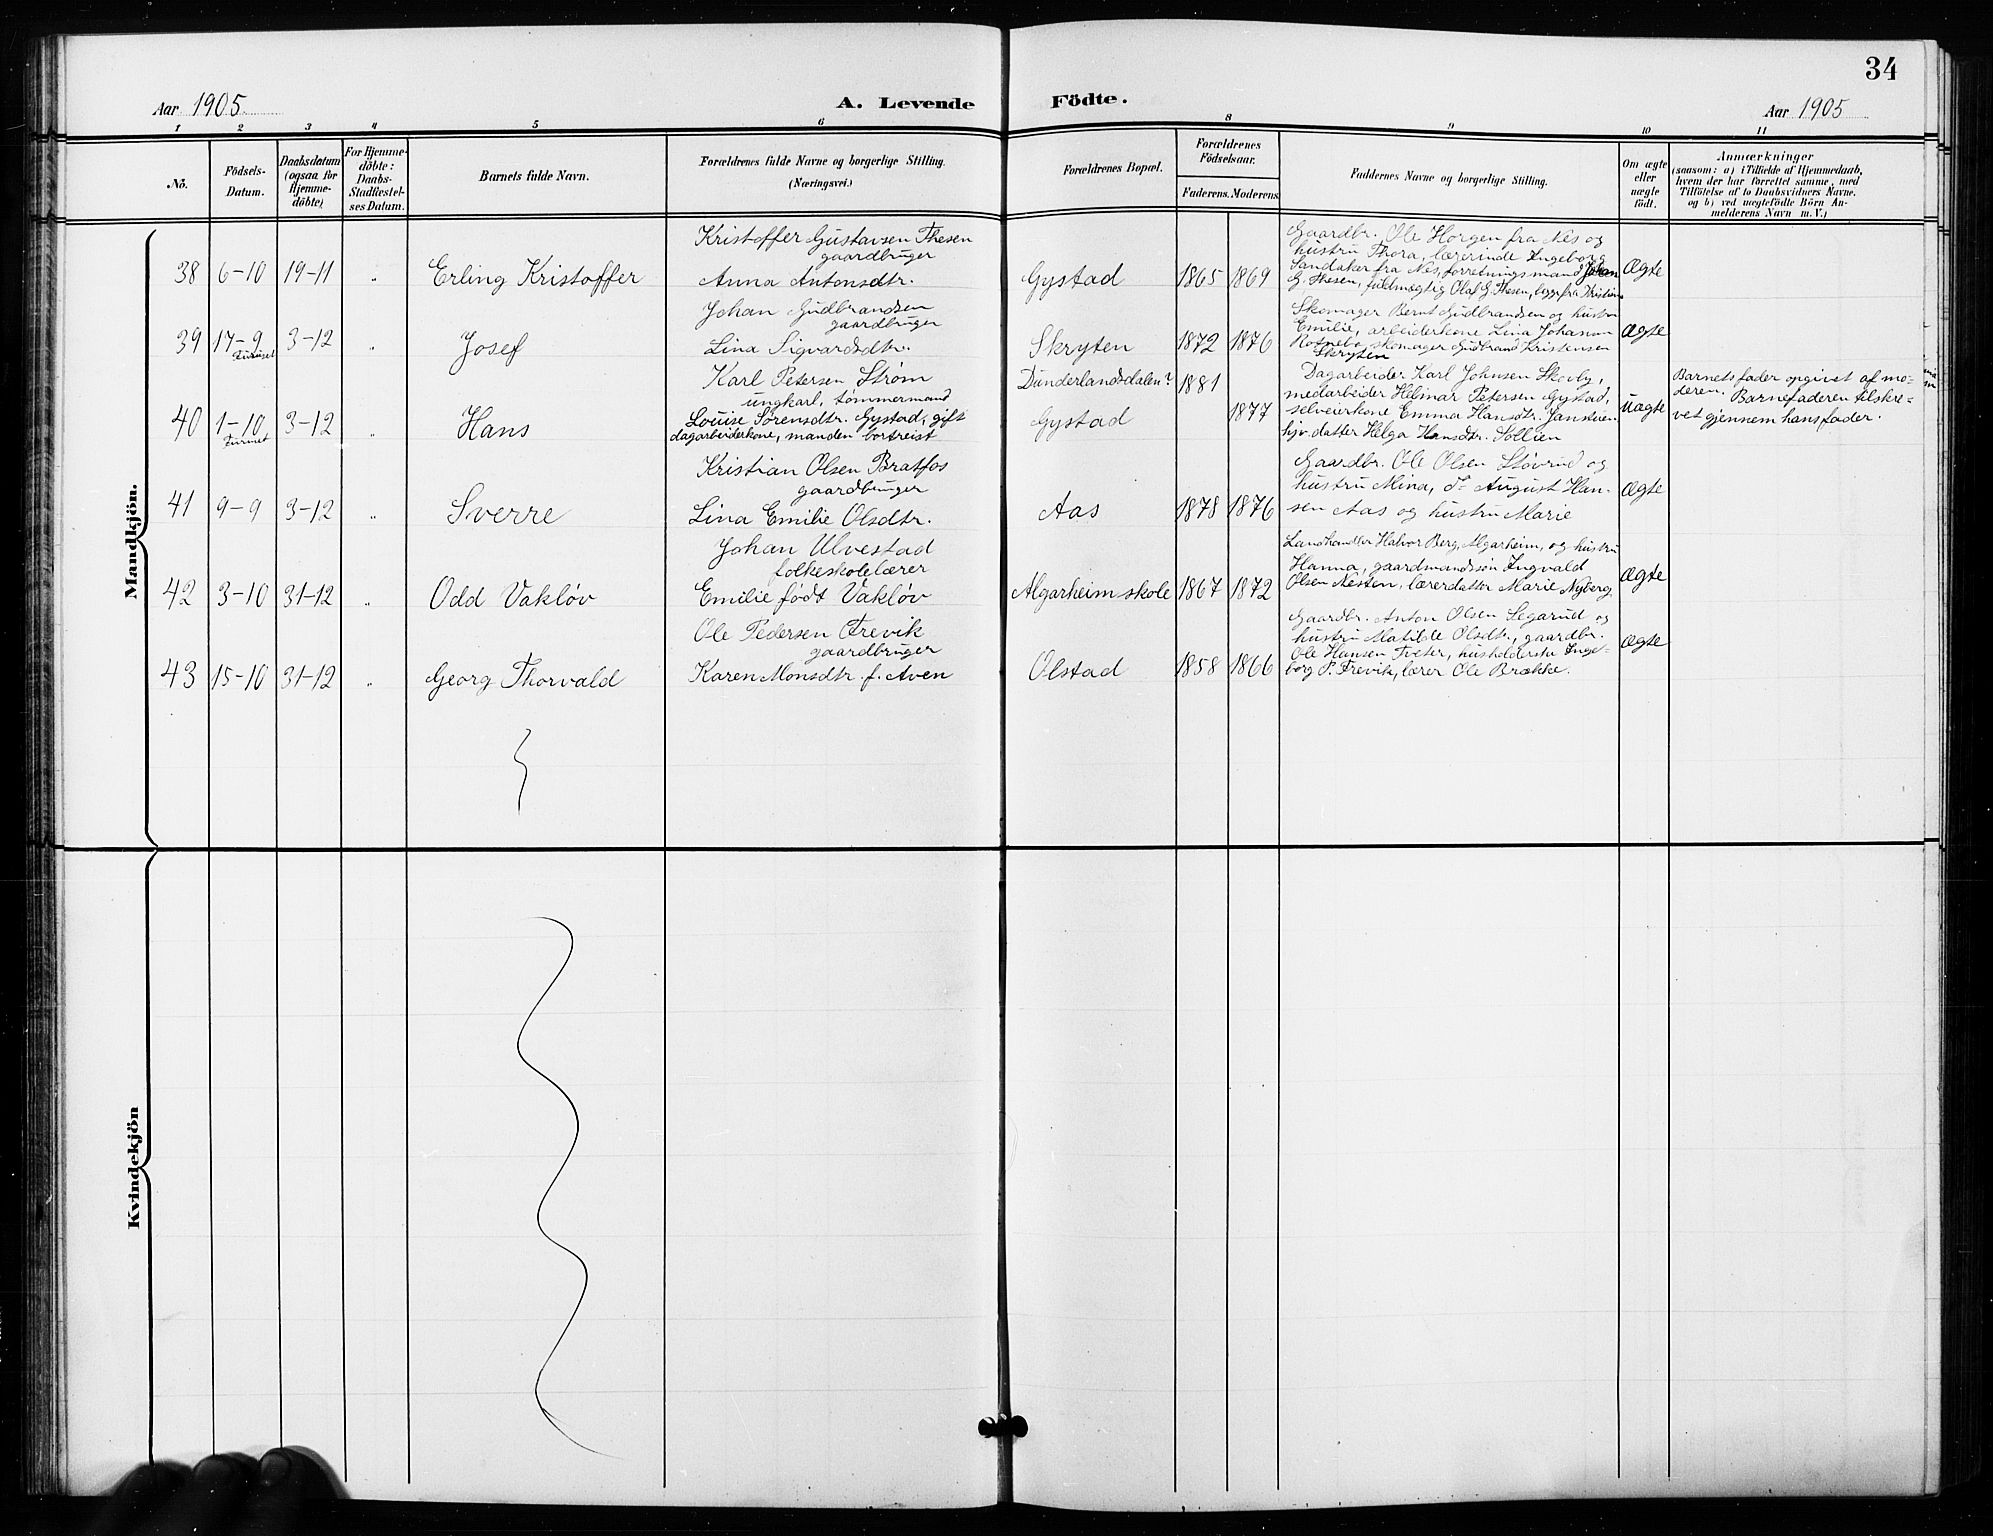 34
Aar 1905
A. Levende
Födte.
Aar 1905
1 2 3 4 5 6 8 9 10 11
No.
Födsels-
Datum.
Daabsdatum
(ogsaa for
Hjemme-
döbte)
For Hjemme-
döbte:
Daabs-
Stadfæstel-
ses Datum.
Barnets fulde Navn.
Forældrenes fulde Navne og borgerlige Stilling.
(Næringsvei.)
Forældrenes Bopæl.
Forældrenes
Födselsaar.
Faderens. Moderens.
Faddernes Navne og borgerlige Stilling.
Om ægte
eller
uægte
födt.
Anmærkninger
(saasom: a) i Tilfælde af Hjemmedaab,
hvem der har forrettet samme, med
Tilföielse af to Daabsvidners Navne.
og b) ved uægtefödte Börn An-
melderens Navn m. V.)
Mandkjön.
38 6-10 19-11 „ Erling Kristoffer
Kristoffer Gustavsen Thesen
gaardbruger
Anna Antonsdtr.
Gystad 1865 1869
Gaardbr. Ole Horgen fra Nes og
hustru Thora, lærerinde Ingeborg
Sandaker fra Nes, forretningsmand Johan
G. Thesen, fuldmægtig Olaf G. Thesen, begge fra Kristiania
Ægte
39 17-9 3-12 „ Josef
Johan Gudbrandsen
gaardbruger
Lina Sigvardsdtr.
Skryten 1872 1876
Skomager Bernt Gudbrandsen og hustru
Emilie, arbeiderkone Lina Johansen
skomager Gudbrand Kristensen
Skryten
Ægte
40 1-10 3-12 „ Hans
Karl Petersen Strøm
ungkarl, tømmermand
Louise Sørensdtr. Gystad, gift
dagarbeiderkone, manden bortreist
Dunderlandsdalen? 1881
Gystad 1877
Dagarbeider Karl Johnsen Skovly,
medarbeider Helmar Petersen Gystad,
selveierkone Emma Hansdtr. Jansteien
hjv. datter Helga Hansdtr. Sollien
Uægte
Barnets fader opgivet af mo-
deren. Barnefaderen tilskre-
vet gjennem hans fader.
41 9-9 3-12 „ Sverre
Kristian Olsen Bratfos
gaardbruger
Lina Emilie Olsdtr.
Aas 1878 1876
Gaardbr. Ole Olsen Støvrud og
hustru Mina, do August Han-
sen Aas og hustru Marie
Ægte
42 3-10 31-12 „ Odd Vakløv
Johan Ulvestad
folkeskolelærer
Emilie født Vakløv
Algarheim skole 1867 1872
Landhandler Halvor Berg, Algarheim, og hustru
Hanna, gaardmandssøn Ingvald
Olsen Nesten, lærerdatter Marie Nyberg.
Ægte
43 15-10 31-12 „ Georg Thorvald
Ole Pedersen Frevik
gaardbruger
Karen Monsdtr. f. Aven
Olstad 1858 1866
Gaardbr. Anton Olsen Segarud og
hustru Matilde Olsdtr., gaardbr.
Ole Hansen Tveter, husholderske Inge-
borg P. Frevik, lærer Ole Brække.
Ægte
Kvindekjön